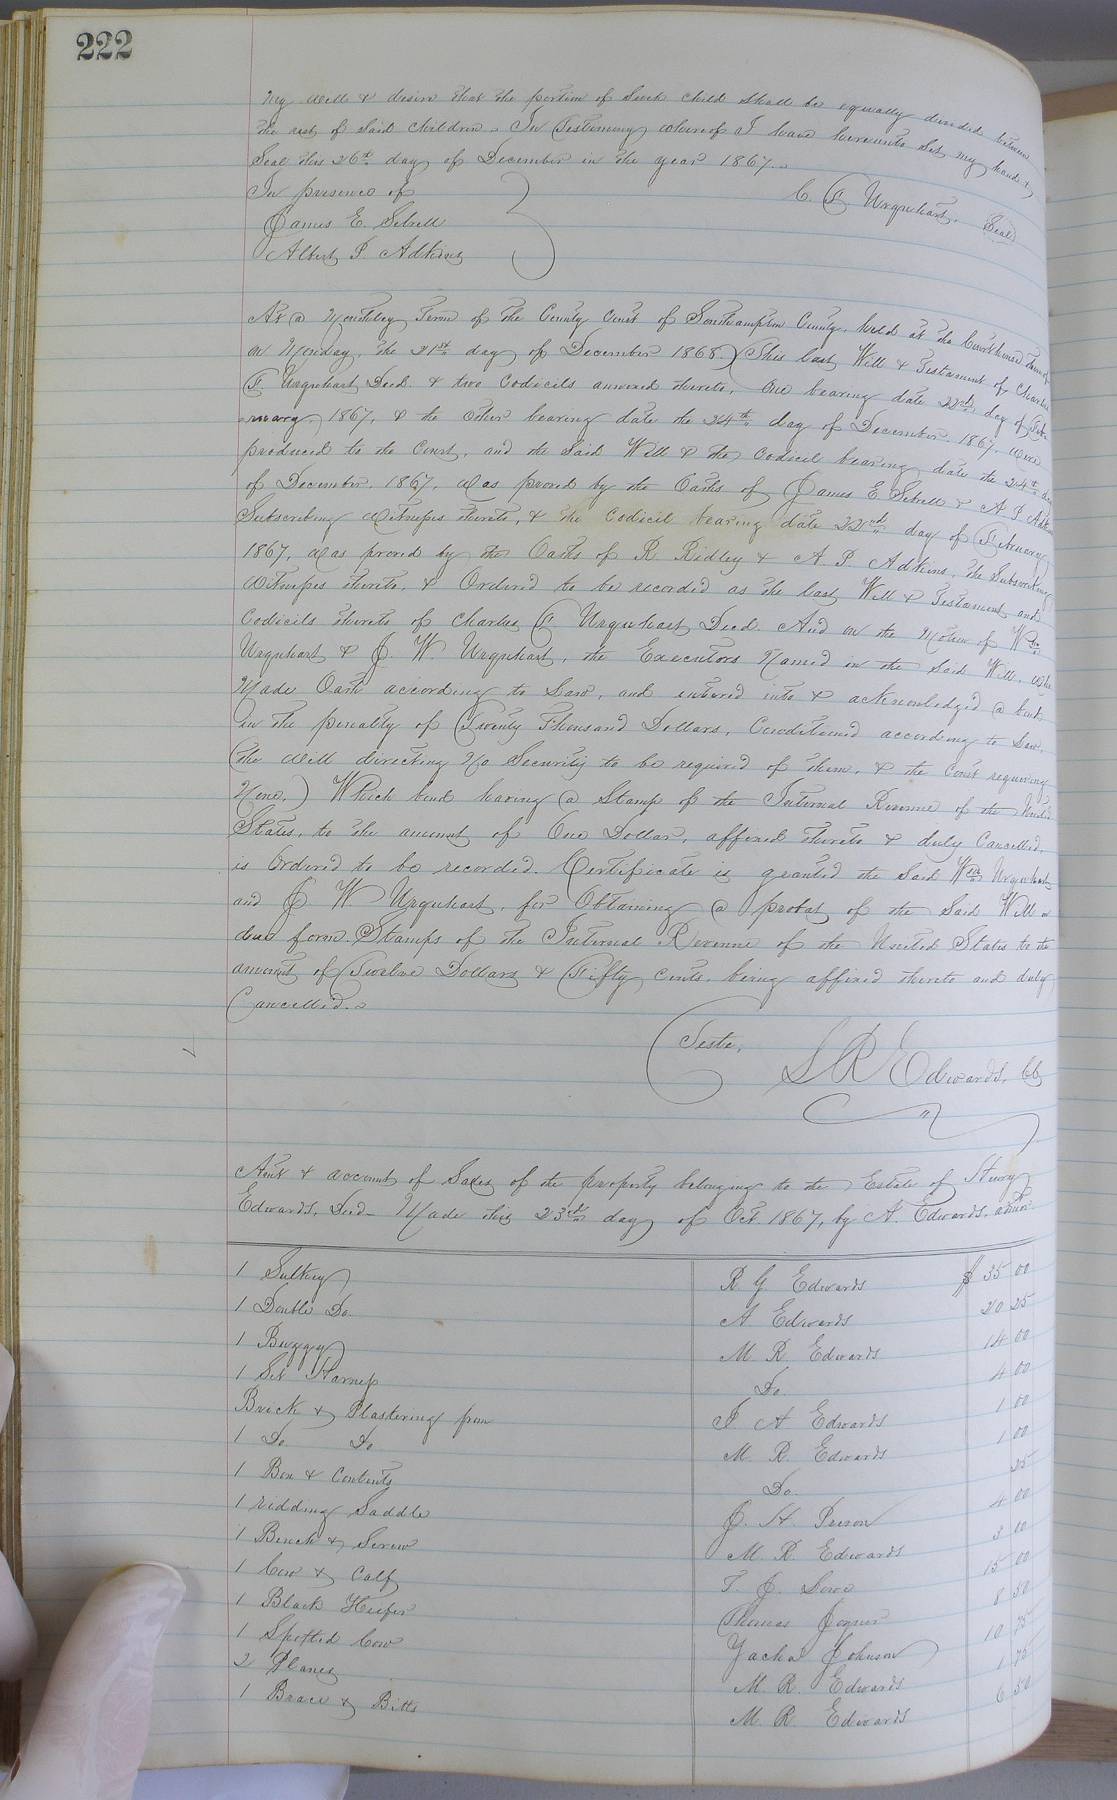 222
My will & desire that the portion of such child shall be equally divided between
the rest of said children. In Testimony whereof I have hereunto set my hand &
Seal this 26th day of December in the year 1867.
In presence of
C. F Urquhart. Seal
James E. Sebrell
Albert P. Adkins
At a Monthly Term of the County Court of Southampton County, held at the Courthouse thereof
on Monday, the 21st day of December 1868. This last Will & Testament of Charles
F Urquhart Decd. & two Codicils annexed thereto, One bearing date 22nd day of Feb-
ruary 1867, & the other bearing date the 24th day of December 1867, were
produced to the Court, and the said Will & the Codicil bearing date the 24th day
of December. 1867, was proved by the Oaths of James E Sebrell & A P Adkins
Subscribing witnesses thereto, & the Codicil bearing date 22nd day of February
1867, was proved by the Oaths of R. Ridley & A. P. Adkins, the Subscribing
witnesses thereto, & Ordered to be recorded as the last Will & Testament and
Codicils thereto of Charles F Urquhart Decd. And on the Motion of Wm
Urquhart & J. W. Urquhart, the Executors Named in the said Will, who
Made Oath according to Law, and entered into & acknowledged a bond
in the penalty of Twenty Thousand Dollars, Conditioned according to Law.
(the will directing No Security to be required of them, & the Court requiring
None.) Which bond having a Stamp of the Internal Revenue of the United
States, to the amount of One Dollar, affixed thereto & duly Cancelled,
is Ordered to be recorded. Certificate is granted the said Wm Urquhart
and J W Urquhart, for Obtaining a probat of the said Will in
due form. Stamps of the Internal Revenue of the United States to the
amount of Twelve Dollars & Fifty cents, being affixed thereto and duly
Cancelled.
Teste,
S R Edwards, CC
& account of Sales of the property belonging to the Estate of Henry
Edwards, Decd. Made this 23rd day of Oct 1867, by A. Edwards, admr
1 Sulkey R G Edwards $ 35 00
1 Double Do. A Edwards 20 25
1 Buggy M R Edwards 14 00
1 Set Harness Do. 4 00
Brick & Plastering from A Edwards 1 00
1 Do Do M. R. Edwards 1 00
1 Box & Contents Do. 25
1 ridding Saddle J. H. 4 00
1 Bench & Screw M. R. Edwards 3 00
1 Cow & Calf T. J. 15 00
1 Black Heifer Thomas Joyner 8 50
1 Spotted Cow Johnson 10 75
2 Planes M. R. Edwards 1 75
1 Brace & Bitts M. R Edwards 6 50